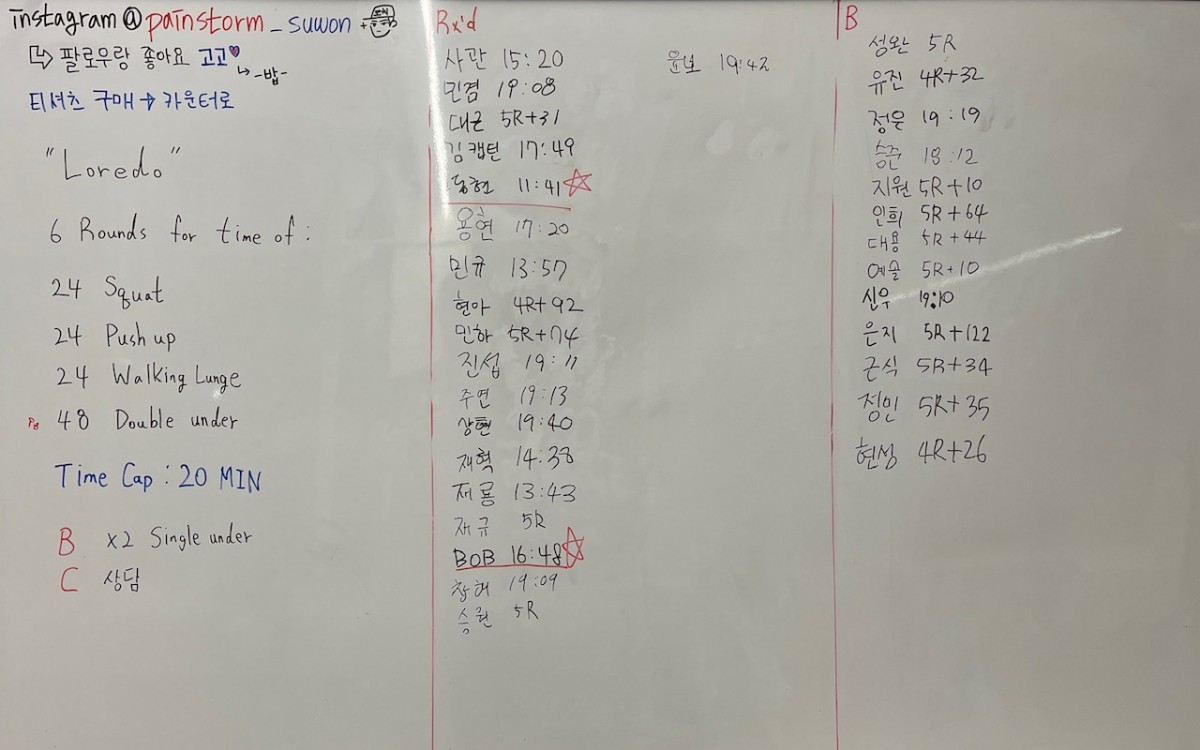 instagram@painstorm_suwon +
팔로우랑 좋아요 고고♥
-밥-
티셔츠 구매 → 카운터로
"Loredo"
6 Rounds for time of :
24 Squat
24 Push up
24 Walking Lunge
48 Double under
Time Cap : 20 MIN
B x2 Single under
C 상담
Rx'd
사관 15:20
민겸 19:08
대근 5R+31
김캡틴 17:49
동현 11:41☆
용현 17:20
민규 13:57
현아 4R+92
민하 5R+74
진섭 19:11
주연 19:13
상현 19:40
재혁 14:38
재룡 13:43
재규 5R
BOB 16:48☆
창해 19:09
승원 5R
윤보 19:42
B
성완 5R
유진 4R+32
정은 19:19
승준 18:12
지원 5R+10
인희 5R+64
대용 5R+44
예슬 5R+10
신우 19:10
은지 5R+122
근식 5R+34
정인 5R+35
현성 4R+26